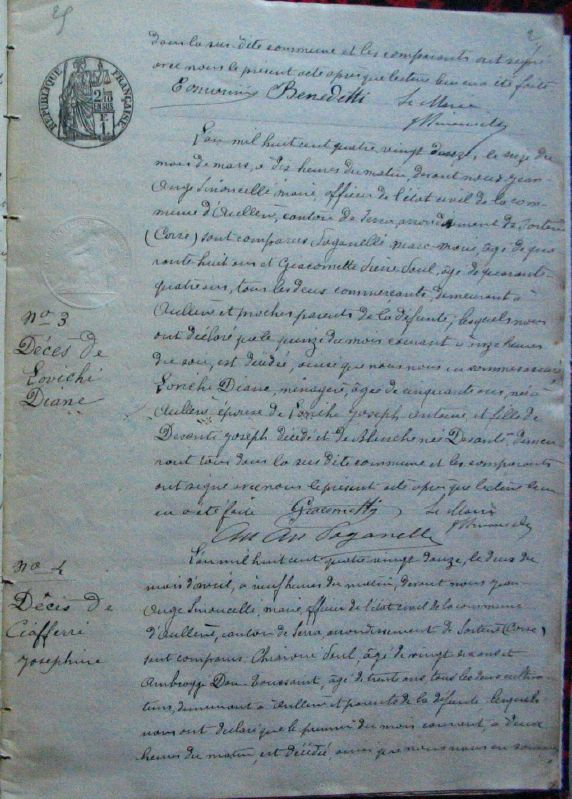 2
RÉPUBLIQUE FRANÇAISE
dans la sus dite commune et les comparants ont signé
avec nous le présent acte après que lecture leur en a été faite
Benedetti Le Maire
L'an mil huit cent quatre vingt douze, le seize du
mois de mars, à dix heures du matin, devant nous Jean
Ange Simoncelli maire, officier de l'état civil de la com
mune d'Aullène, canton de Serra, arrondissement de Sartène
(Corse) sont comparus Paganelli Marc Marie, âgé de qua
rante huit ans et Giacometti Pierre Paul, âgé de quarante
quatre ans, tous les deux commerçants, demeurant à
Aullène et proches parents de la défunte, lesquels nous
ont déclaré que le quinze du mois courant à onze heures
du soir, est décédée, ainsi que nous nous en sommes assuré
Lovichi Diane, ménagère, âgée de cinquante ans, née à
Aullène, épouse de Lovichi Joseph Antoine, et fille de
Desanti Joseph décédé et de Blanche née Desanti, demeu
rant tous dans la sus dite commune et les comparants
ont signé avec nous le présent acte après que lecture leur
en a été faite Giacometti Le Maire
Paganelli
No 3
Décès de
Lovichi
Diane
L'an mil huit cent quatre vingt douze, le deux du
mois d'avril, à neuf heures du matin, devant nous Jean
Ange Simoncelli, maire, officier de l'état civil de la commune
d'Aullène, canton de Serra, arrondissement de Sartène (Corse)
sont comparus Paul, âgé de vingt six ans et
Ambroggi Don Toussaint, âgé de trente ans, tous les deux cultiva
teurs, demeurant à Aullène et parents de la défunte lesquels
nous ont déclaré que le premier du mois courant, à deux
heures du matin, est décédée ainsi que nous nous en sommes
No 4
Décès de
Ciafferi
Joséphine